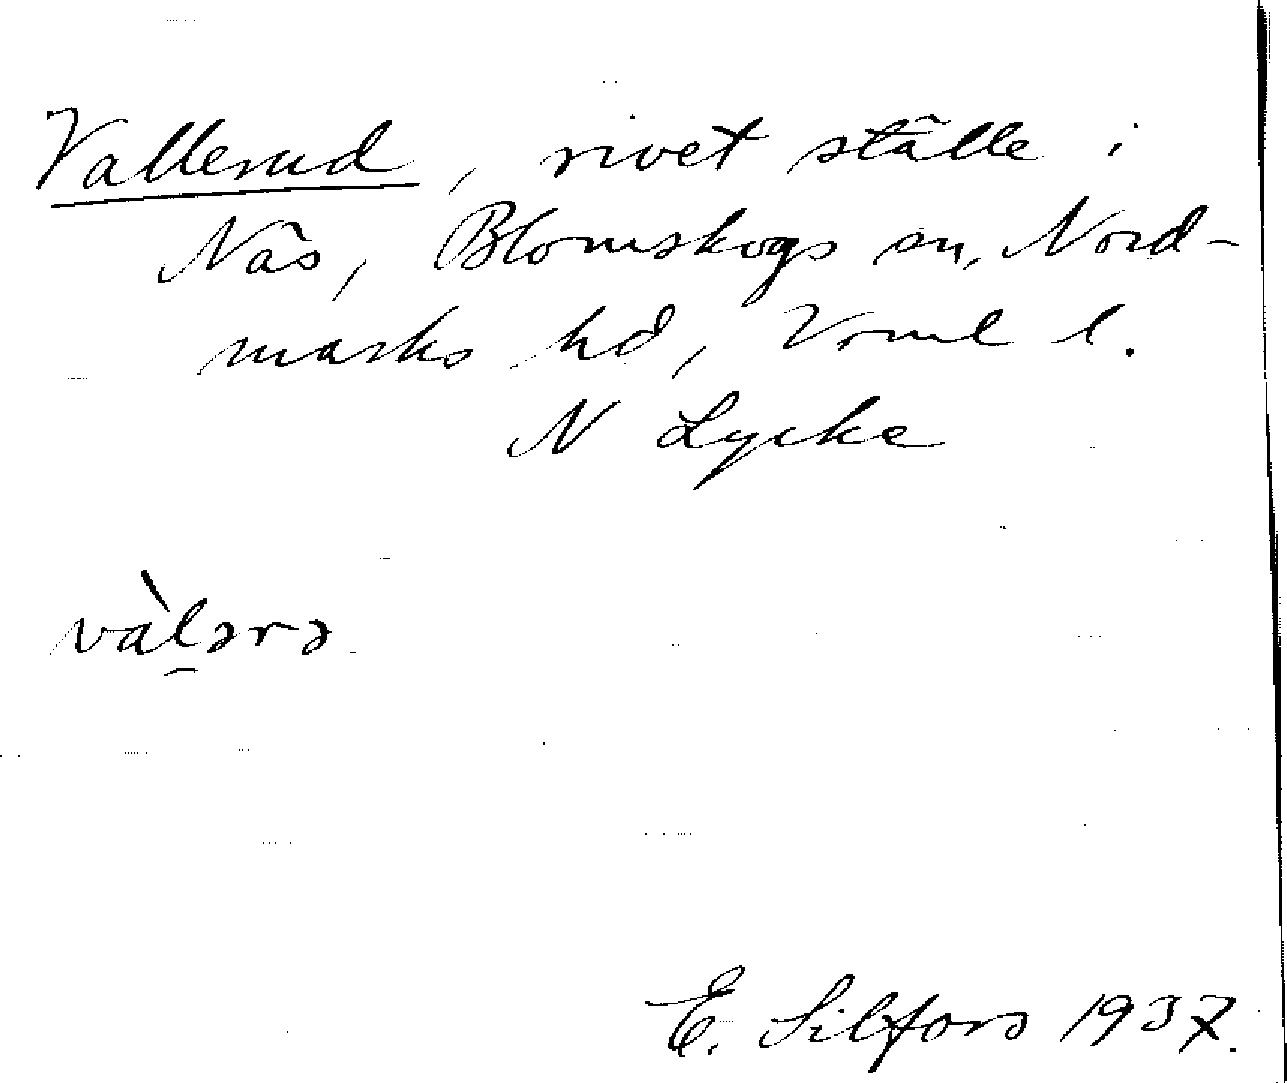 Vallerud, rivet ställe i
Näs, Blomskogs sn, Nord-
marks hd, Vrml l.
N Lycke
vàl̯ərə
E. Silfors 1937.